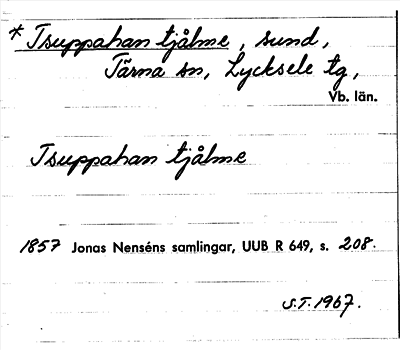 * Tsuppahan tjålme, sund,
Tärna sn, Lycksele tg,
Vb. län.
Tsuppahan tjålme
1857 Jonas Nenséns samlingar, UUB R 649, s. 208.
S.T. 1967.